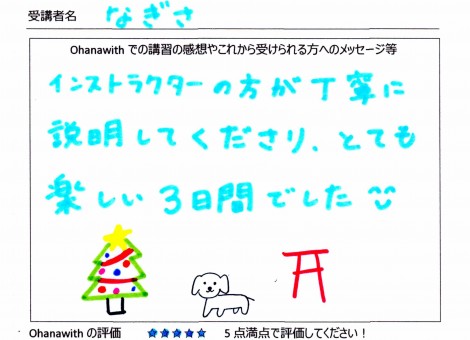 受講者名 なぎさ
Ohanawith での講習の感想やこれから受けられる方へのメッセージ等
インストラクターの方が丁寧に
説明してくださり、とても
楽しい3日間でした
Ohanawith の評価 ★★★★★ 5点満点で評価してください!